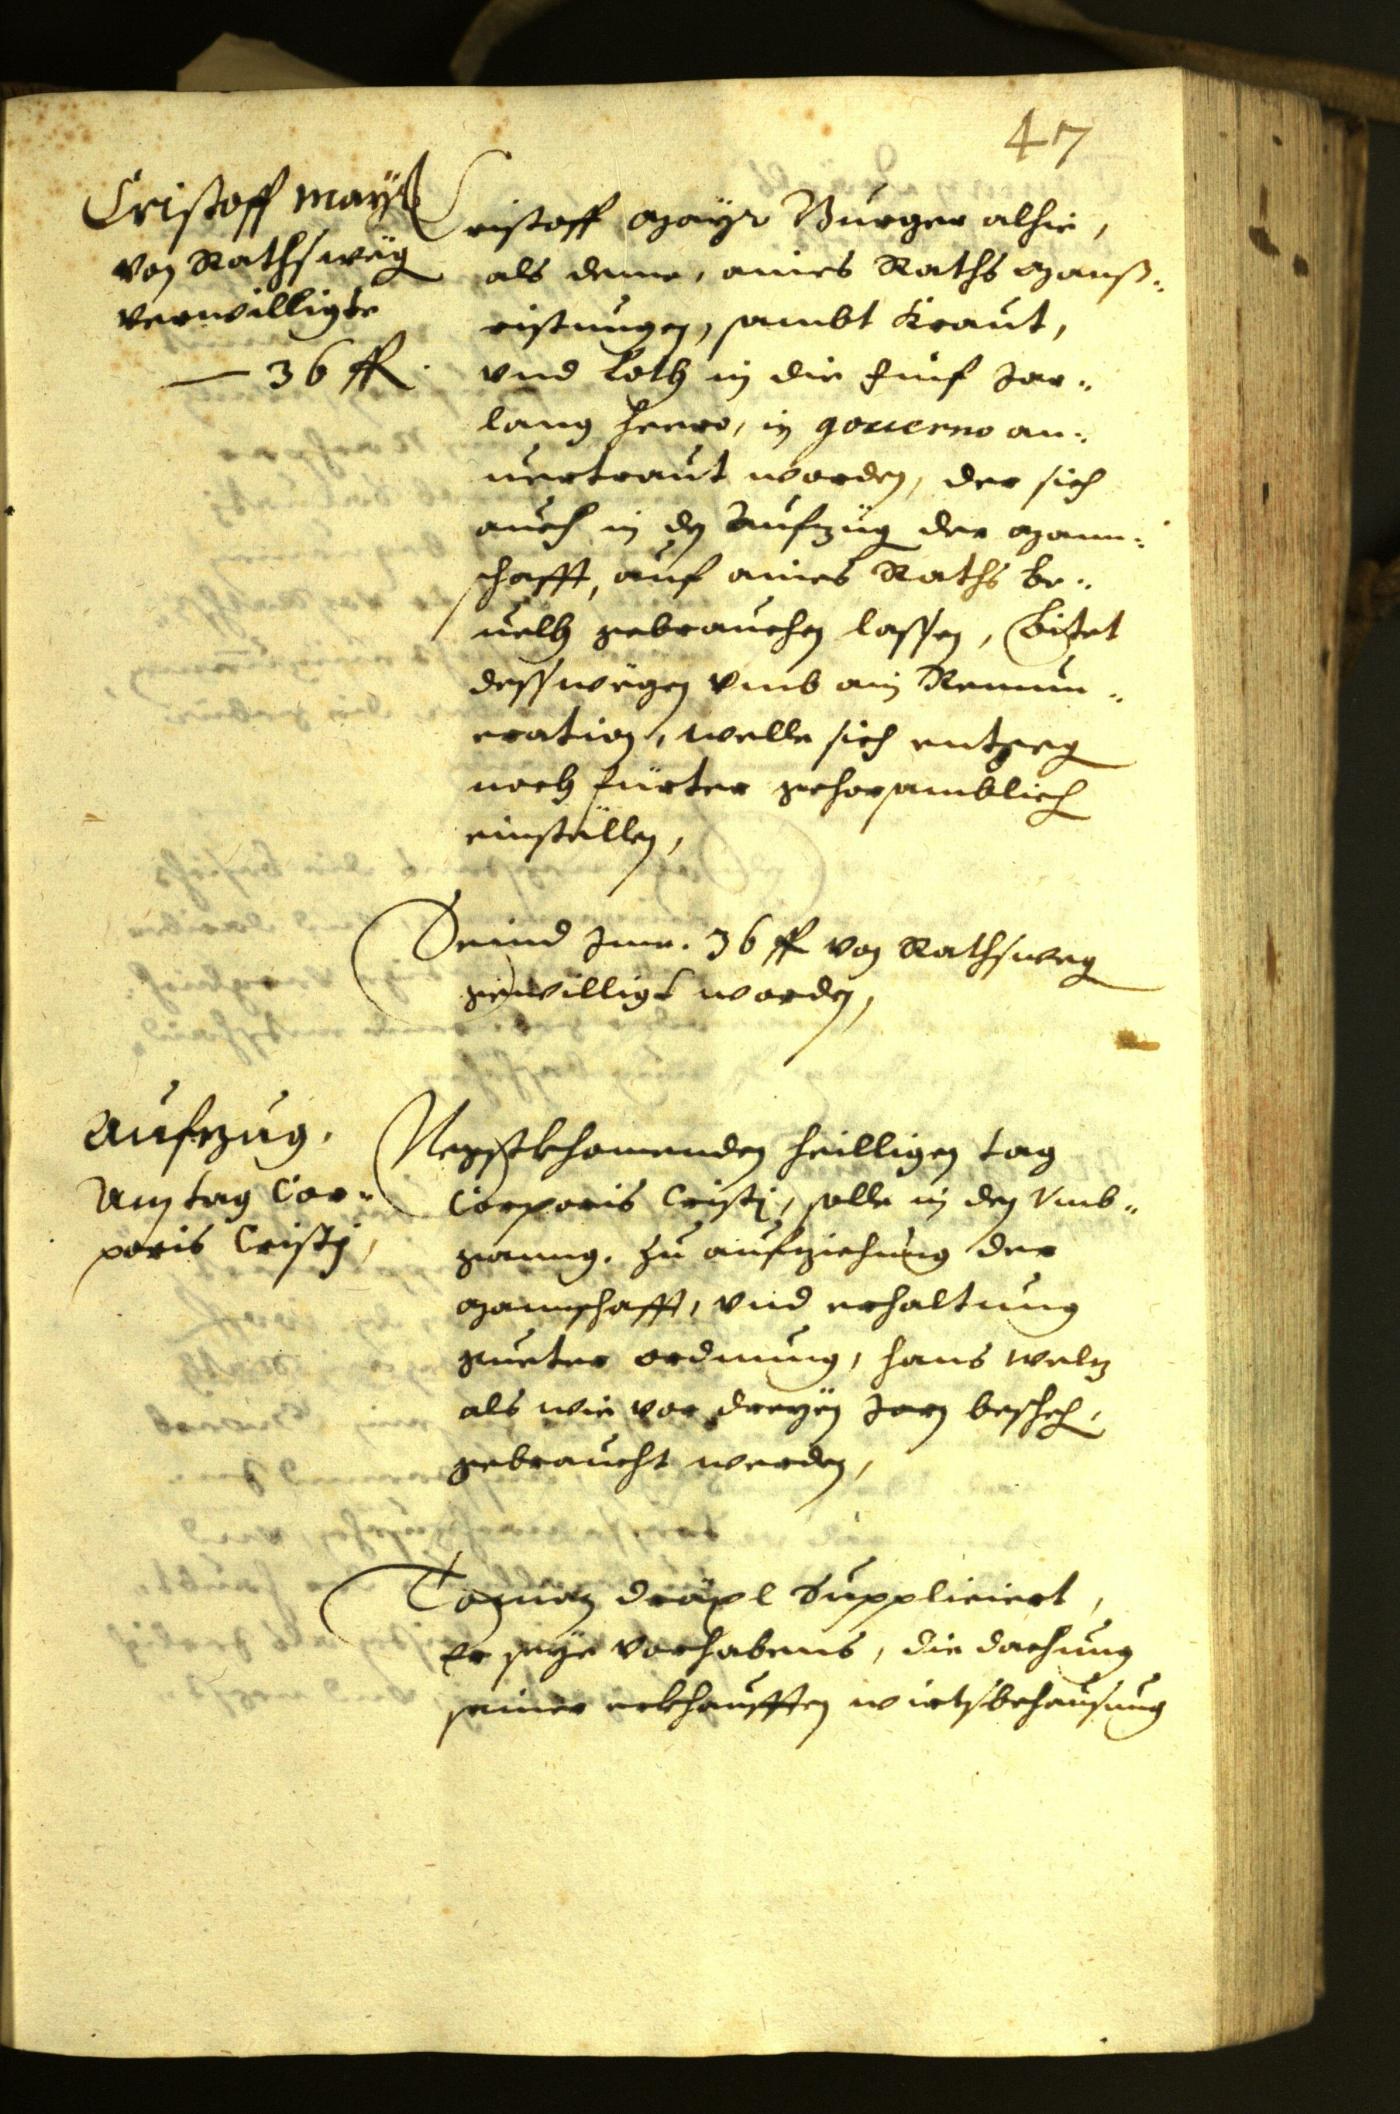 47
Cristoff Mayr
von Rathsweg
verwilligte
— 36 fl.
Cristoff Mayr Burger alhie,
als deme, aines Raths Manß-
ristungen, sambt Kraut,
vnd Loth in die fünf Jar-
lang heero, in gouerno an-
uertraut worden, der sich
auch in den Aufzüg der Mann-
schafft, auf aines Raths be-
uelh gebrauchen lassen, Bitet
desswegen vmb ain Remun-
eration, welle sich entgeg
noch fürter gehorsamblich
einstellen,
Seind Jme. 36 fl von Rathsweg
gewilligt worden,
Aufzug.
Am tag Cor-
poris Cristj,
Negstkhomenden heilligen tag
Corporis Cristj, solle in den Vmb-
ganng. zu aufziehung der
Mannschafft, vnd erhaltung
gueter ordnung, Hans Weltz
als wie vor dreyen Jarn bescheh,
gebraucht werden,
dräxl Suppliciert,
Er seye vorhabens, die dachung
seiner erkhaufften wirtsbehausung